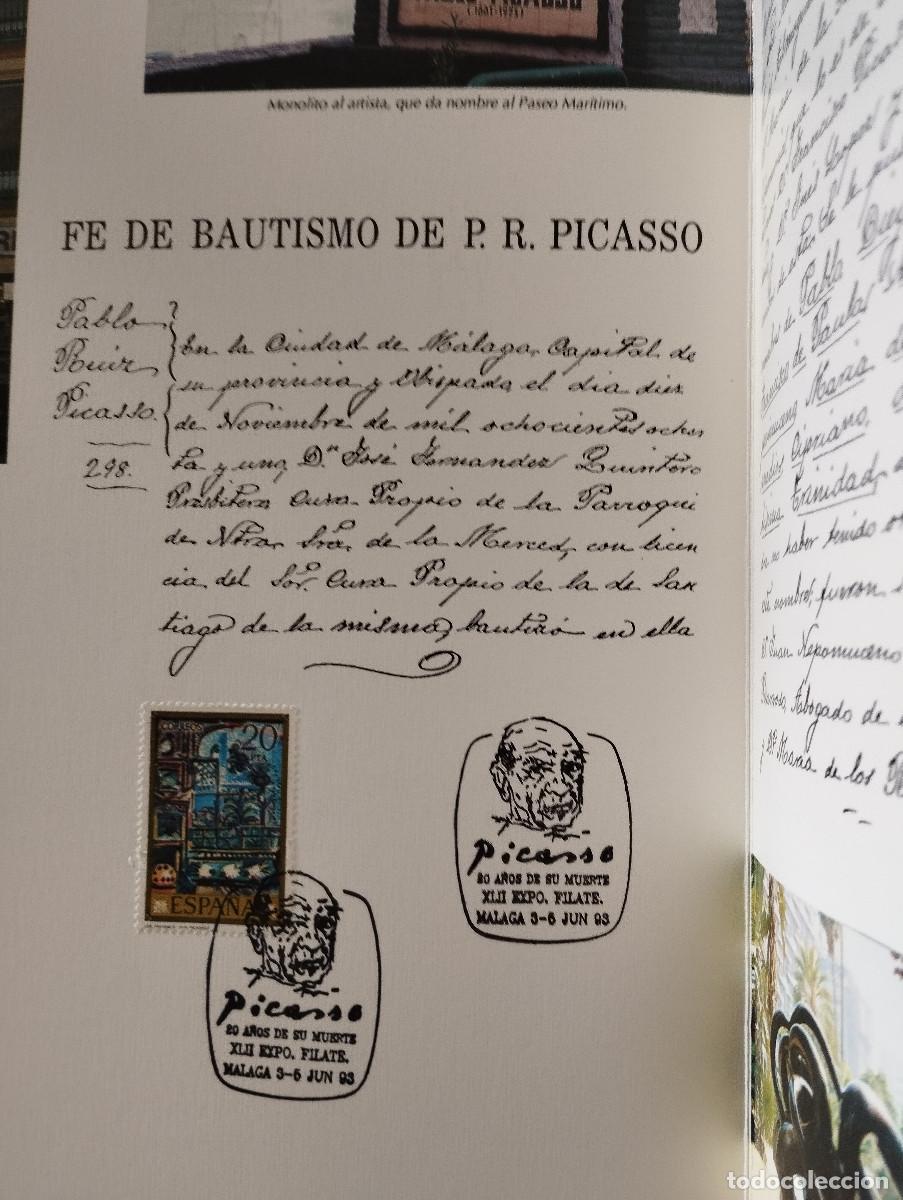 PABLO PICASSO
(1881-1973)
Monolito al artista, que da nombre al Paseo Marítimo.
FE DE BAUTISMO DE P. R. PICASSO
Pablo
Ruiz
Picasso
298.
En la Ciudad de Málaga, Capital de
su provincia y Obispado el dia diez
de Noviembre de mil ochocientos ochen
ta y uno, Dn José Fernandez Quintero
Presbitero Cura Propio de la Parroqui
de Ntra. Sra. de la Merced, con licen
cia del Sor. Cura Propio de la de San
tiago de la misma, bautizó en ella
CORREOS
20
PTA
ESPAÑA
Picasso
20 AÑOS DE SU MUERTE
XLII EXPO. FILATE.
MALAGA 3-6 JUN 93
Picasso
20 AÑOS DE SU MUERTE
XLII EXPO. FILATE.
MALAGA 3-6 JUN 93
de la
Francisco
Pablo
de Paula
Maria de
Cipriano,
Trinidad,
haber tenido
nombres, fueron
Juan Nepomuceno
Abogado de
Maria de los
todocoleccion